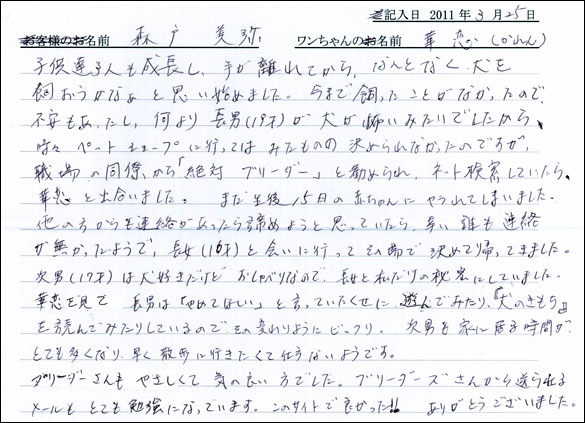 記入日 2011年3月25日
お客様のお名前 森戸 美弥 ワンちゃんのお名前 華恋 (かれん)
子供達3人も成長し、手が離れてから、なんとなく犬を
飼おうかなぁと思い始めました。今まで飼ったことがなかったので、
不安もあったし、何より長男(19才)が犬が怖いみたいでしたから、
時々ペットショップに行ってはみたものの決められなかったのですが、
職場の同僚から「絶対ブリーダー」と勧められ、ネット検索していたら、
華恋と出合いました。まだ生後15日の赤ちゃんにやられてしまいました。
他の方からも連絡があったら諦めようと思っていたら、幸い誰も連絡
が無かったようで、長女(16才)と会いに行ってその場で決めて帰ってきました。
次男(17才)は犬好きだけどおしゃべりなので、長女と私だけの秘密にしていました。
華恋を見て 長男は「やめてほしい」と言っていたくせに 遊んでみたり、「犬のきもち」
を読んでみたりしているので、その変わりようにビックリ。次男も家に居る時間が
とても多くなり、早く散歩に行きたくて仕方ないようです。
ブリーダーさんも やさしくて 気の良い方でした。ブリーダーズさんから送られる
メールも とても勉強になっています。このサイトで良かった!! ありがとうございました。